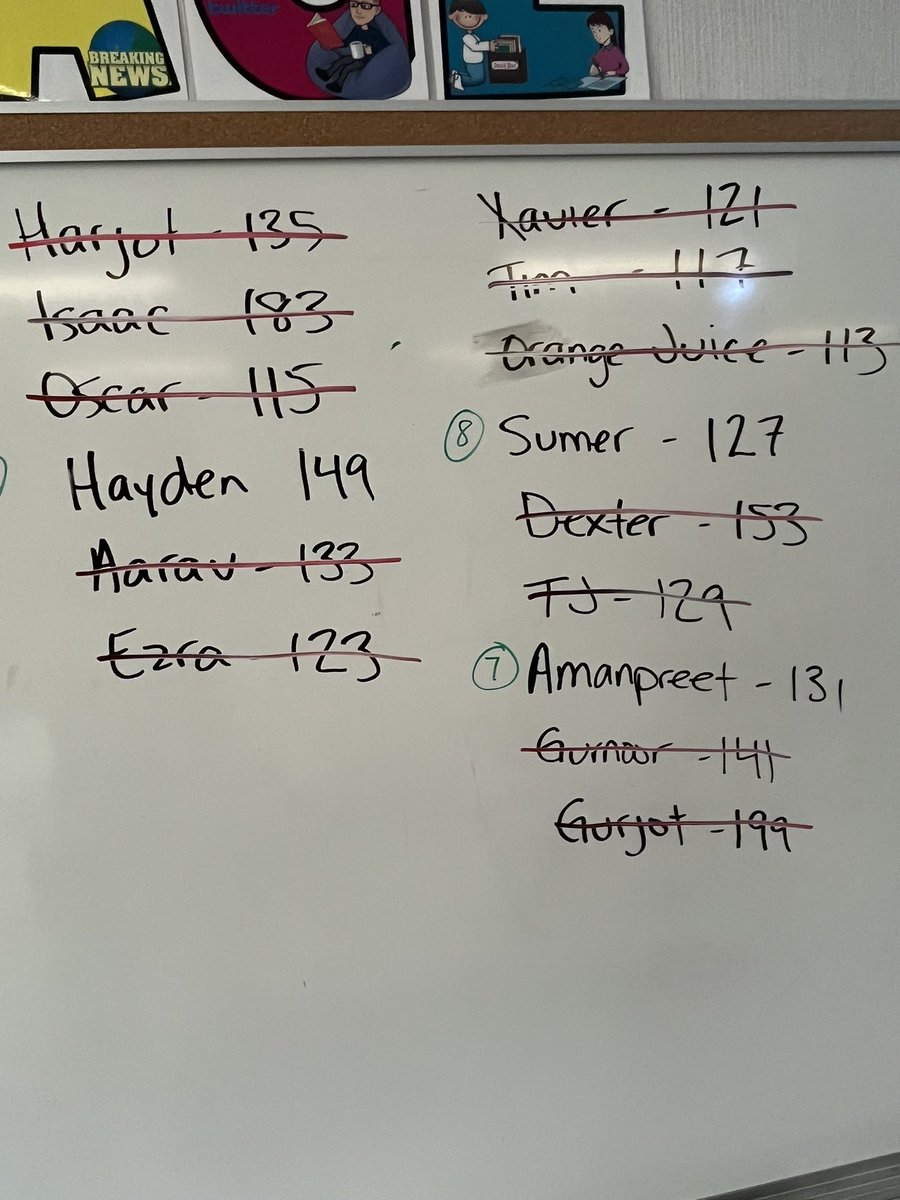 twitter
BREAKING
NEWS
Harjot - 135
Isaac 183
Oscar - 115
Hayden 149
Aarav - 133
Ezra 123
Xavier - 121
Tim - 117
Orange Juice - 113
8 Sumer - 127
Dexter - 153
TJ - 129
7 Amanpreet - 131
Gurnoor - 141
Gurjot - 199